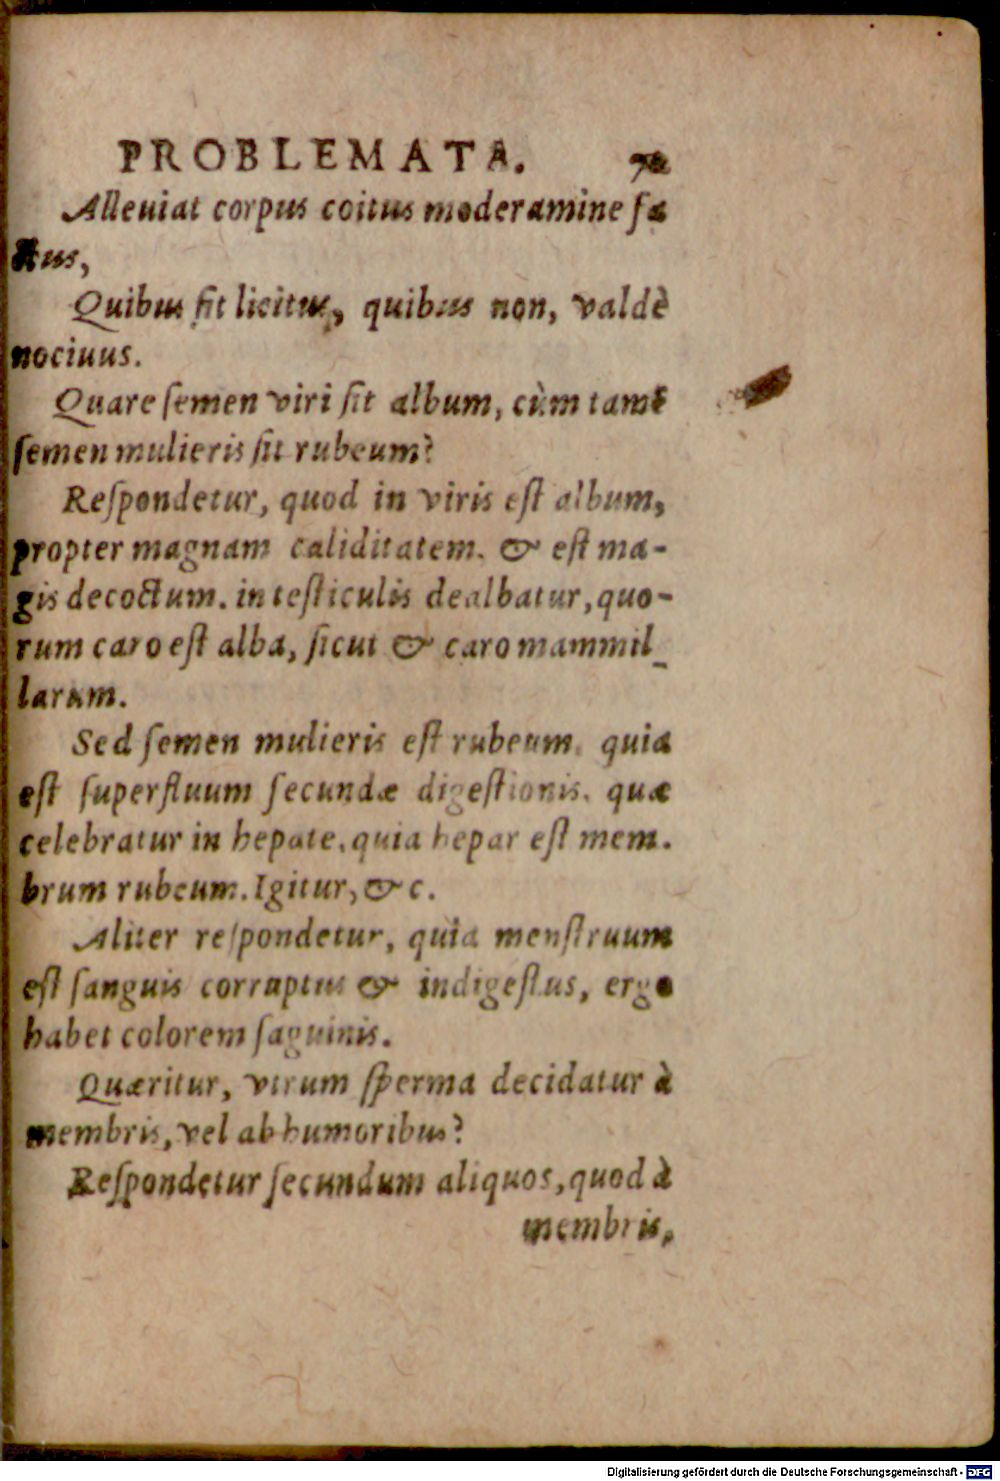 PROBLEMATA.
Alleuiat corpus coitus moderamine fa
ctus,
Quibus fit licitus, quibus non, valdè
nociuus.
Quare ſemen viri ſit album, cùm tamẽ
ſemen mulieris ſit rubeum?
Reſpondetur, quod in viris eſt album,
propter magnam caliditatem. & eſt ma-
gis decoctum. in teſticulis dealbatur, quo-
rum caro eſt alba, ſicut & caro mammil_
larum.
Sed ſemen mulieris eſt rubeum, quia
eſt ſuperfluum ſecundæ digeſtionis, quæ
celebratur in hepate, quia hepar eſt mem.
brum rubeum. Igitur, & c.
Aliter reſpondetur, quia menſtruum
eſt ſanguis corruptus & indigeſtus, ergo
habet colorem ſaguinis.
Quæritur, vtrum ſperma decidatur à
membris, vel ab humoribus?
Reſpondetur ſecundum aliquos, quod à
membris,
Digitalisierung gefördert durch die Deutsche Forschungsgemeinschaft - DFG